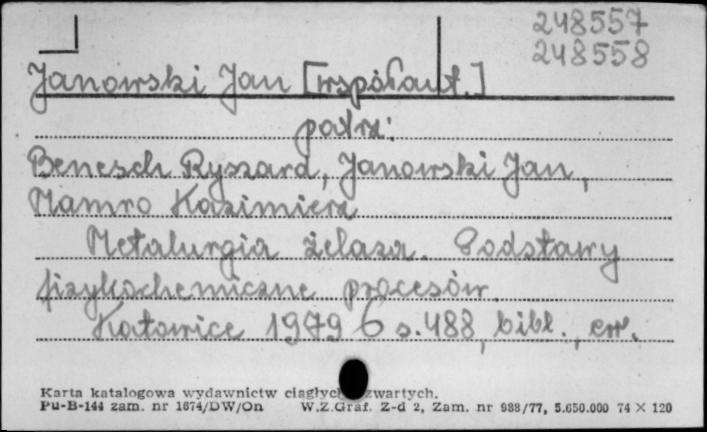 248557
248558
Janowski Jan [współaut.]
patrz:
Benesch Ryszard, Janowski Jan,
Mamro Kazimierz
Metalurgia żelaza. Podstawy
fizykochemiczne procesów.
Katowice 1979 6 s. 488, bibl., err.
Karta katalogowa wydawnictw ciągłych zwartych.
Pu-B-144 zam. nr 1674/DW/On W.Z.Graf. Z-d 2, Zam. nr 988/77, 5.650.000 74 × 120